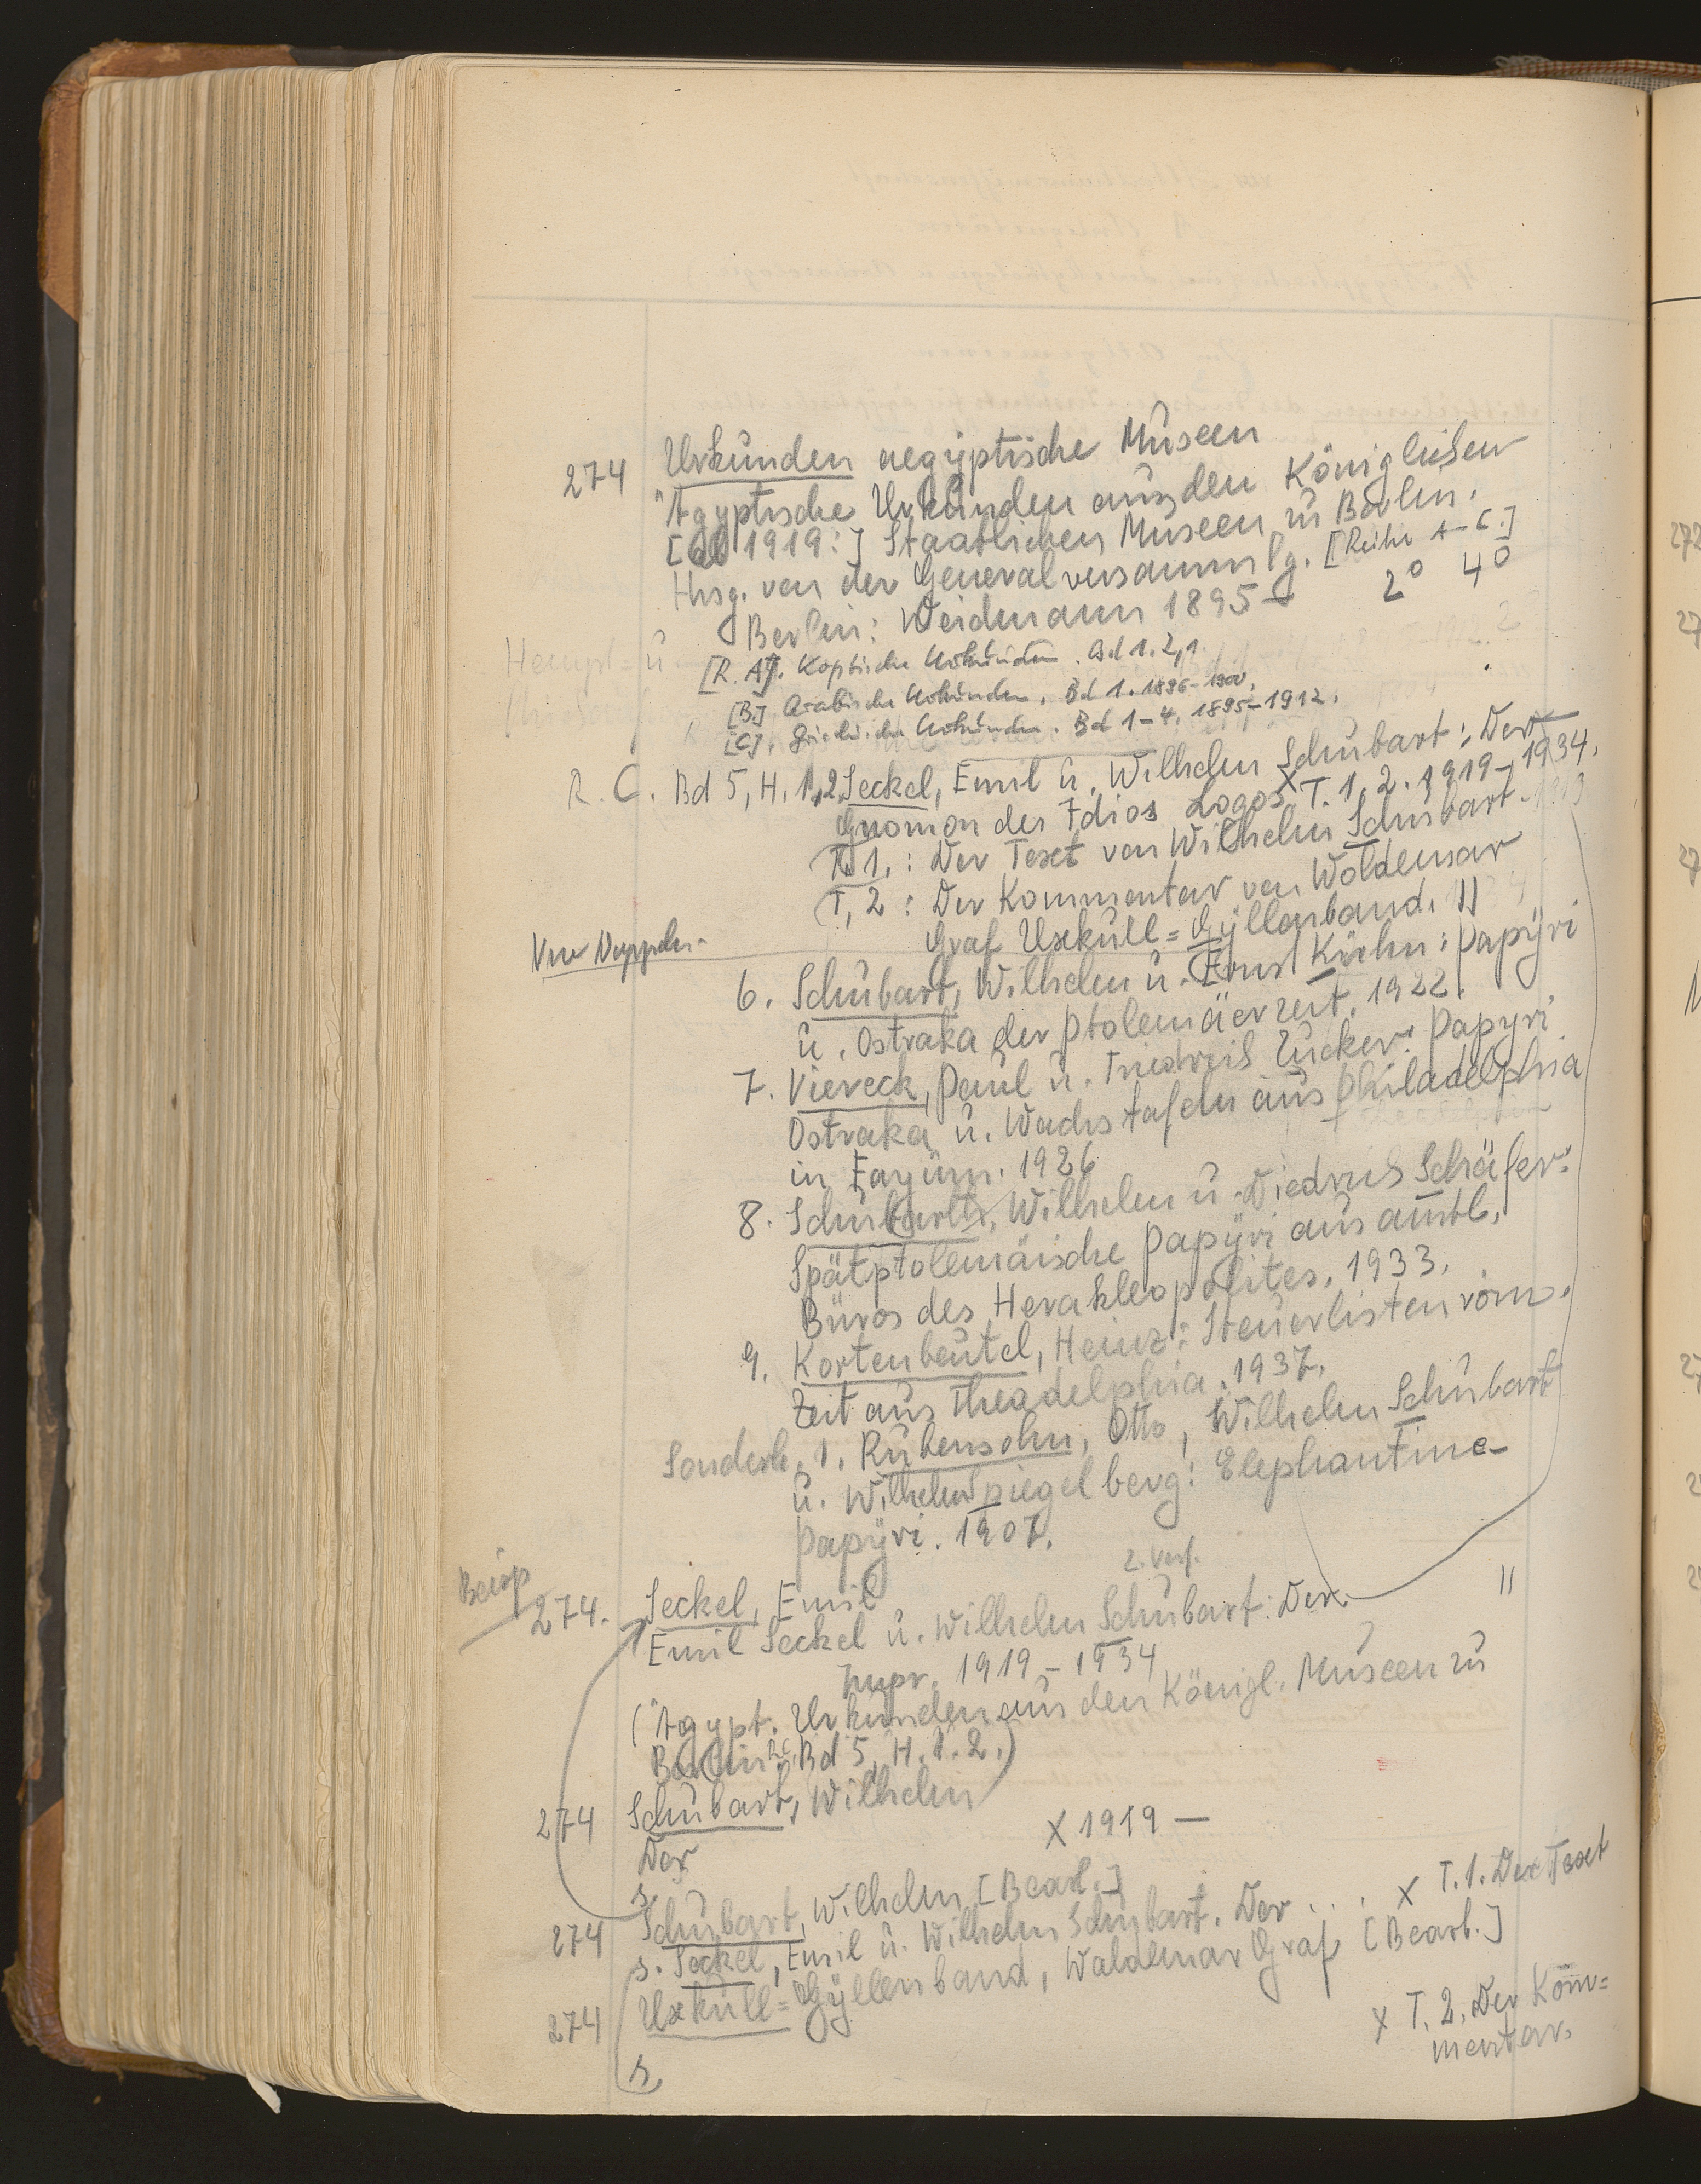 274 Urkunden aegyptische Museen
"Agyptische Urkunden aus den Königlichen
[ab 1919:] Staatlichen Museen zu Berlin.
Hrsg. von der Generalversammlg. [Reihe A-C.]
Berlin: Weidmann 1895- 2° 4°
[R. A]. Koptische Urkunden. Bd 1. 2,1.
[B.] Arabische Urkunden. Bd 1. 1896-1900.
[C]. Griechische Urkunden. Bd 1-4. 1895-1912.
R. C. Bd 5, H. 1,2 Seckel, Emil u. Wilhelm Schubart: Der
Gnomon des Idios Logos. T. 1. 2. 1919-1934.
T. 1. : Der Text von Wilhelm Schubart.
T. 2 : Der Kommentar von Woldemar
Graf Uxküll=Gyllenband. ||
6. Schubart, Wilhelm u. Ernst Kühn: Papyri
u. Ostraka der Ptolemäerzeit. 1922.
7. Viereck, Paul u. Friedrich Zucker: Papyri
Ostraka u. Wachstafeln aus Philadelphia
in Fayûm. 1926
8. Schubart, Wilhelm u. Diedrich Schäfer:
Spätptolemäische Papyri aus amtl.
Büros des Herakleopolites. 1933.
9. Kortenbeutel, Heinz: Steuerlisten röm.
Zeit aus Theadelphia. 1937.
Sonderh. 1. Rubensohn, Otto, Wilhelm Schubart
u. Wilhelm Spiegelberg: Elephantine-
Papyri. 1907.
2. Verf.
Beisp
274. Seckel, Emil
Emil Seckel u. Wilhelm Schubart: Der ||
Impr. 1919-1934
("Agypt. Urkunden aus den Königl. Museen zu
Berlin R.C. Bd 5, H. 1. 2.)
274 Schubart, Wilhelm
Der X 1919 —
s.
274 Schubart, Wilhelm [Bearb.]
s. Seckel, Emil u. Wilhelm Schubart. Der . . . X T. 1. Der Text
274 Uxküll=Gyllenband, Woldemar Graf [Bearb.]
X T. 2. Der Kom̄=
mentar.
s.